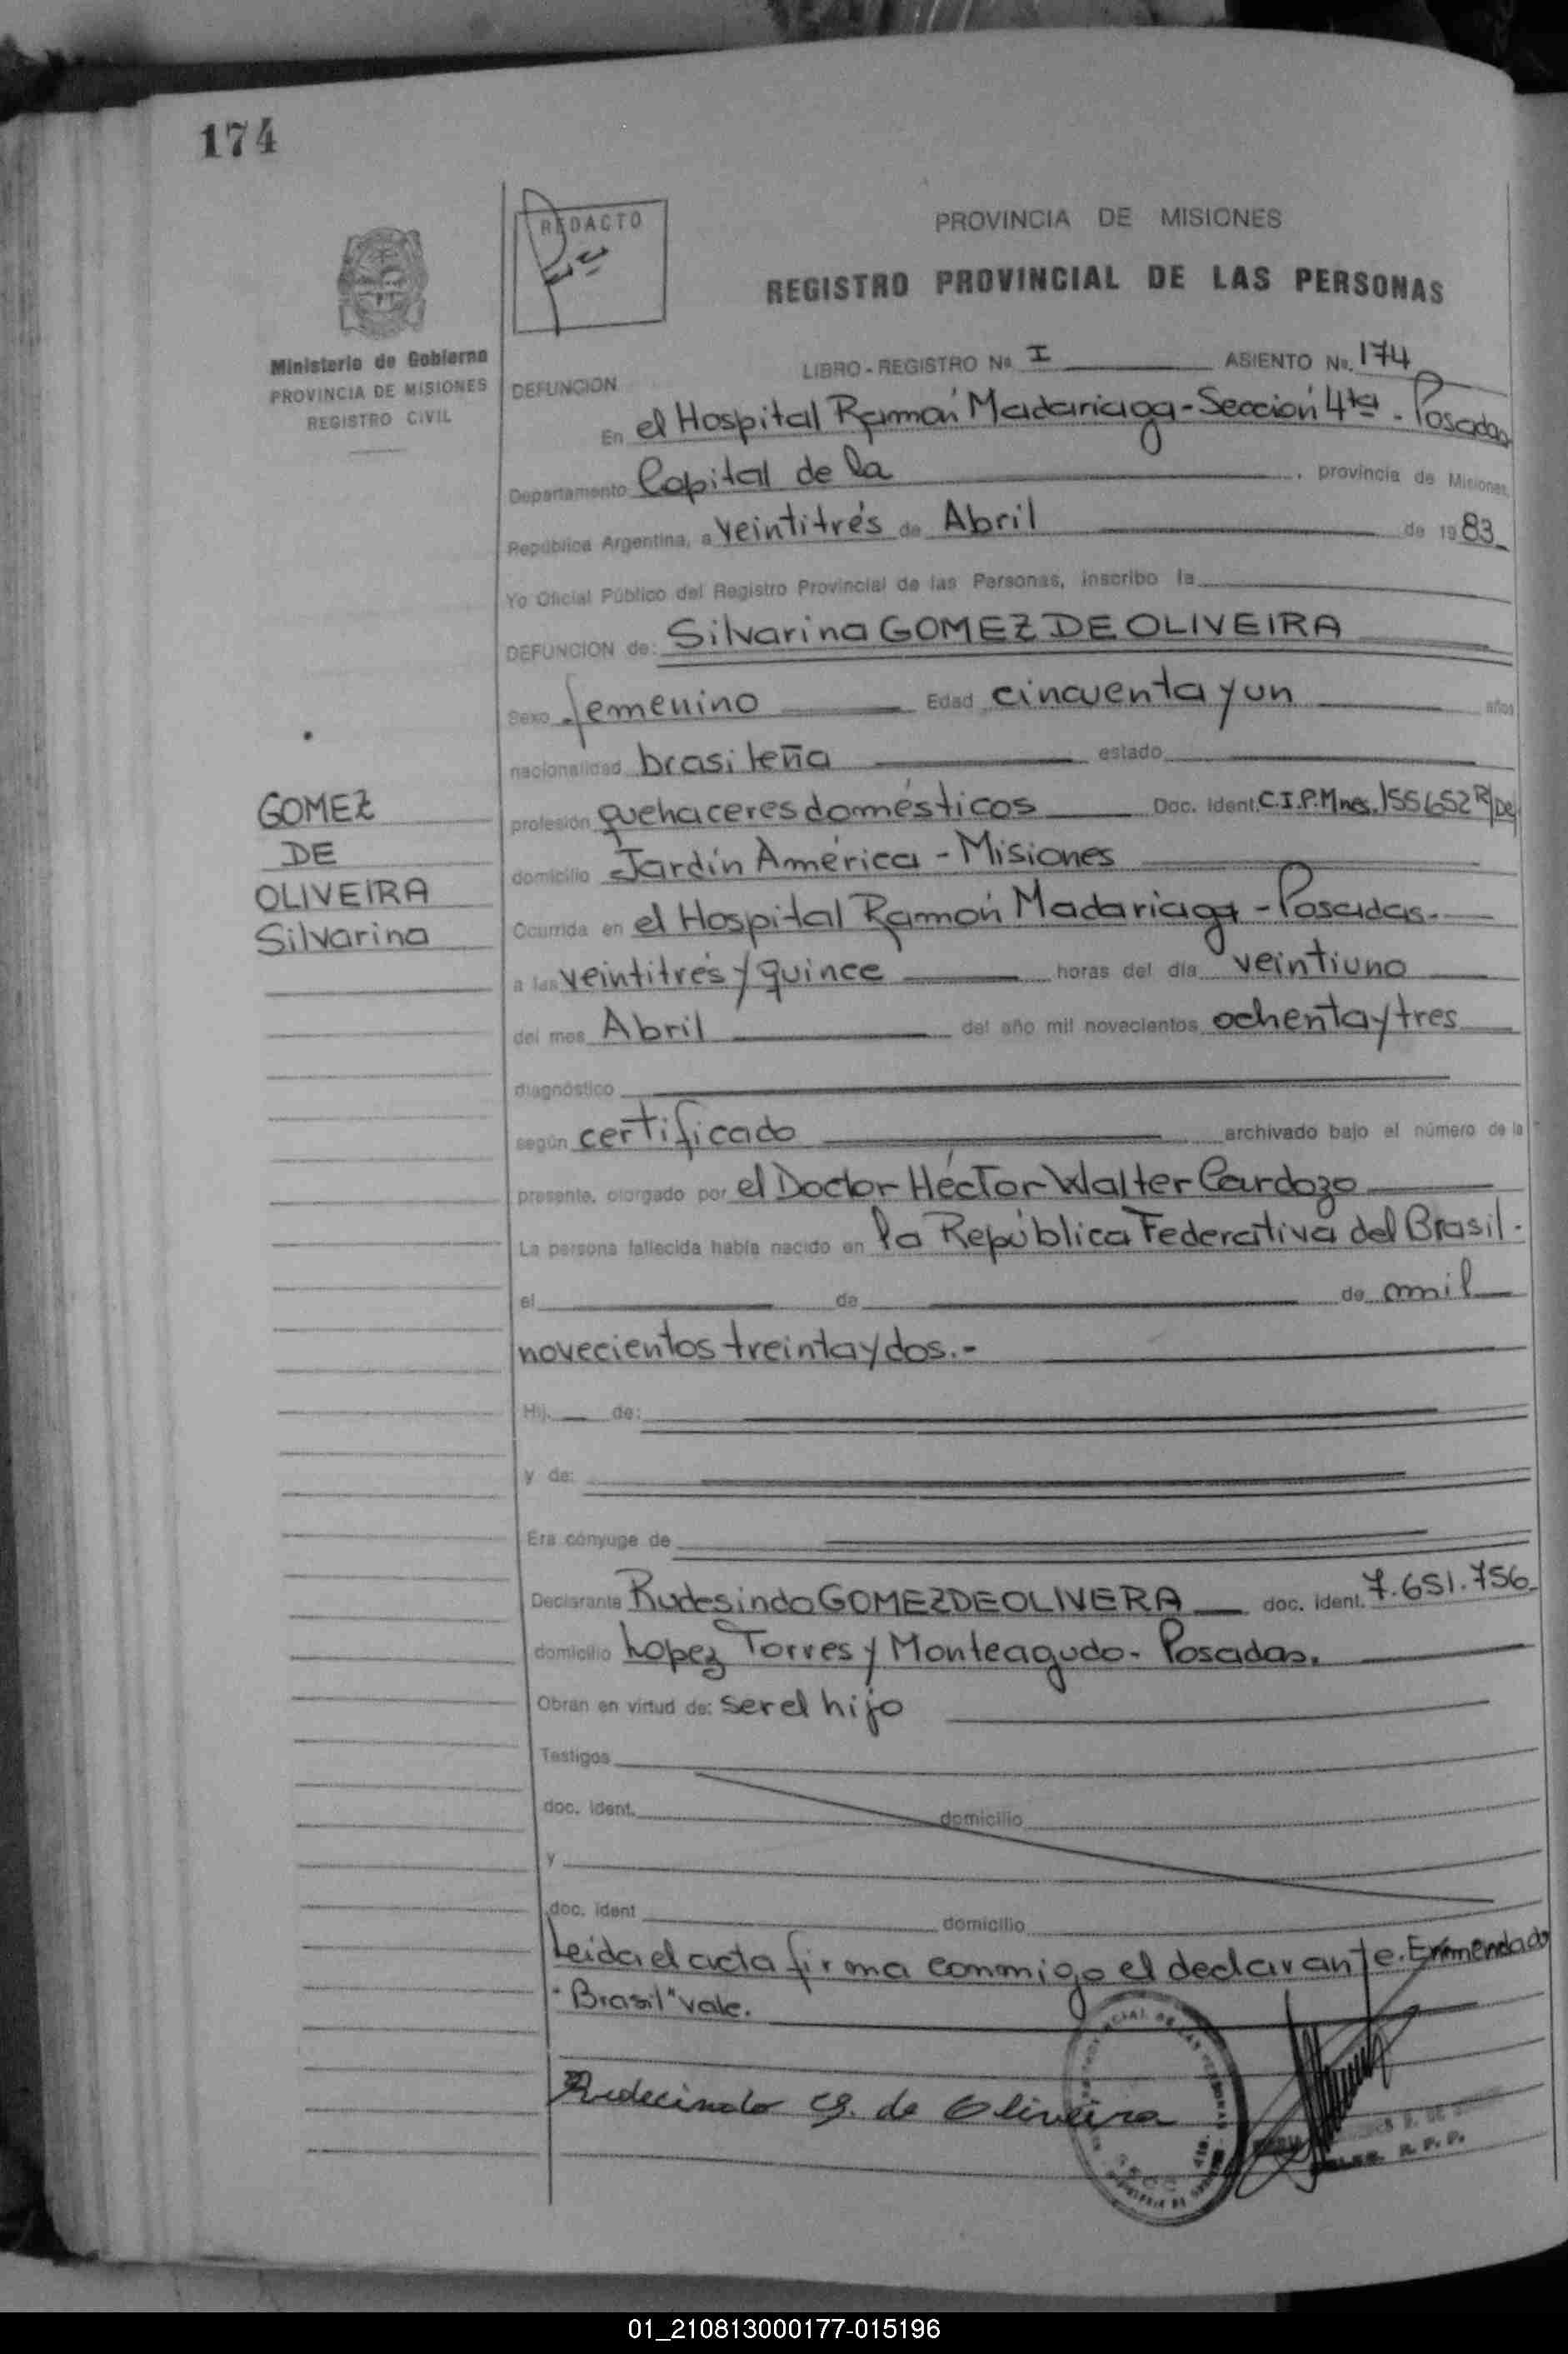 174
REDACTO
PROVINCIA DE MISIONES
REGISTRO PROVINCIAL DE LAS PERSONAS
Ministerio de Gobierno
PROVINCIA DE MISIONES
REGISTRO CIVIL
LIBRO - REGISTRO No. I ASIENTO No. 174
DEFUNCION
En el Hospital Ramón Madariaga - Sección 4ta - Posadas
Departamento Capital de la , provincia de Misiones,
República Argentina, a veintitrés de Abril de 1983
Yo Oficial Público del Registro Provincial de las Personas, inscribo la
DEFUNCION de: Silvarina GOMEZ DE OLIVEIRA
Sexo femenino Edad cincuenta y un años
nacionalidad brasileña estado
GOMEZ
DE
OLIVEIRA
Silvarina
profesión quehaceres domésticos Doc. Ident. C.I.P.Mnes. 155652
domicilio Jardín América - Misiones
Ocurrida en el Hospital Ramón Madariaga - Posadas.
a las veintitrés y quince horas del día veintiuno
del mes Abril del año mil novecientos ochenta y tres
diagnóstico
según certificado archivado bajo el número de la
presente, otorgado por el Doctor Héctor Walter Cardozo
La persona fallecida había nacido en la República Federativa del Brasil.
el de de mil
novecientos treinta y dos.-
Hij de:
y de:
Era cónyuge de
Declarante Rudesindo GOMEZ DE OLIVERA doc. ident. 7.651.756
domicilio Lopez Torres y Monteagudo - Posadas.
Obran en virtud de: ser el hijo
Testigos
doc. ident. domicilio
y
doc. ident domicilio
Leida el acta firma conmigo el declarante. Enmendado
"Brasil" vale.
Rudecindo G. de Oliveira
R. P. P.
01_210813000177-015196